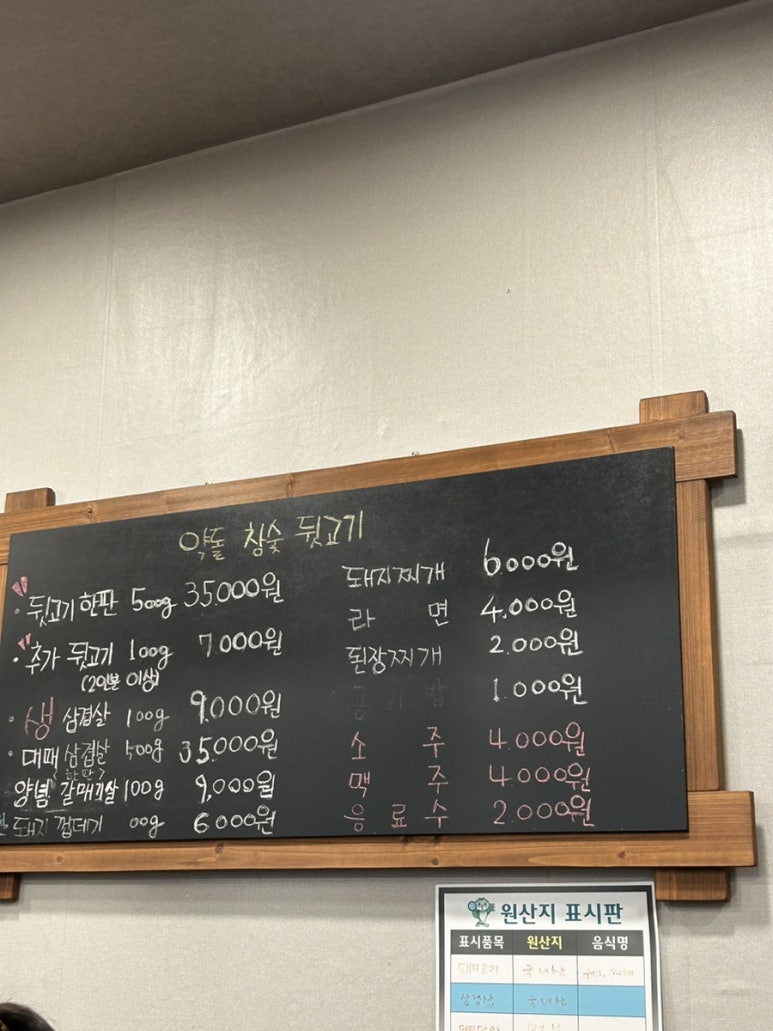 약돌 참숯 뒷고기
뒷고기 한판 500g 35.000원
추가 뒷고기 100g 7.000원
(2인분 이상)
생 삼겹살 100g 9.000원
대패 삼겹살 500g 35.000원
(한판)
양념 갈매기살 100g 9,000원
돼지 껍데기 00g 6000원
돼지찌개 6.000원
라 면 4.000원
된장찌개 2.000원
공기밥 1.000원
소 주 4.000원
맥 주 4.000원
음 료 수 2.000원
원산지 표시판
표시품목 원산지 음식명
돼지고기 국내산
삼겹살 국내산